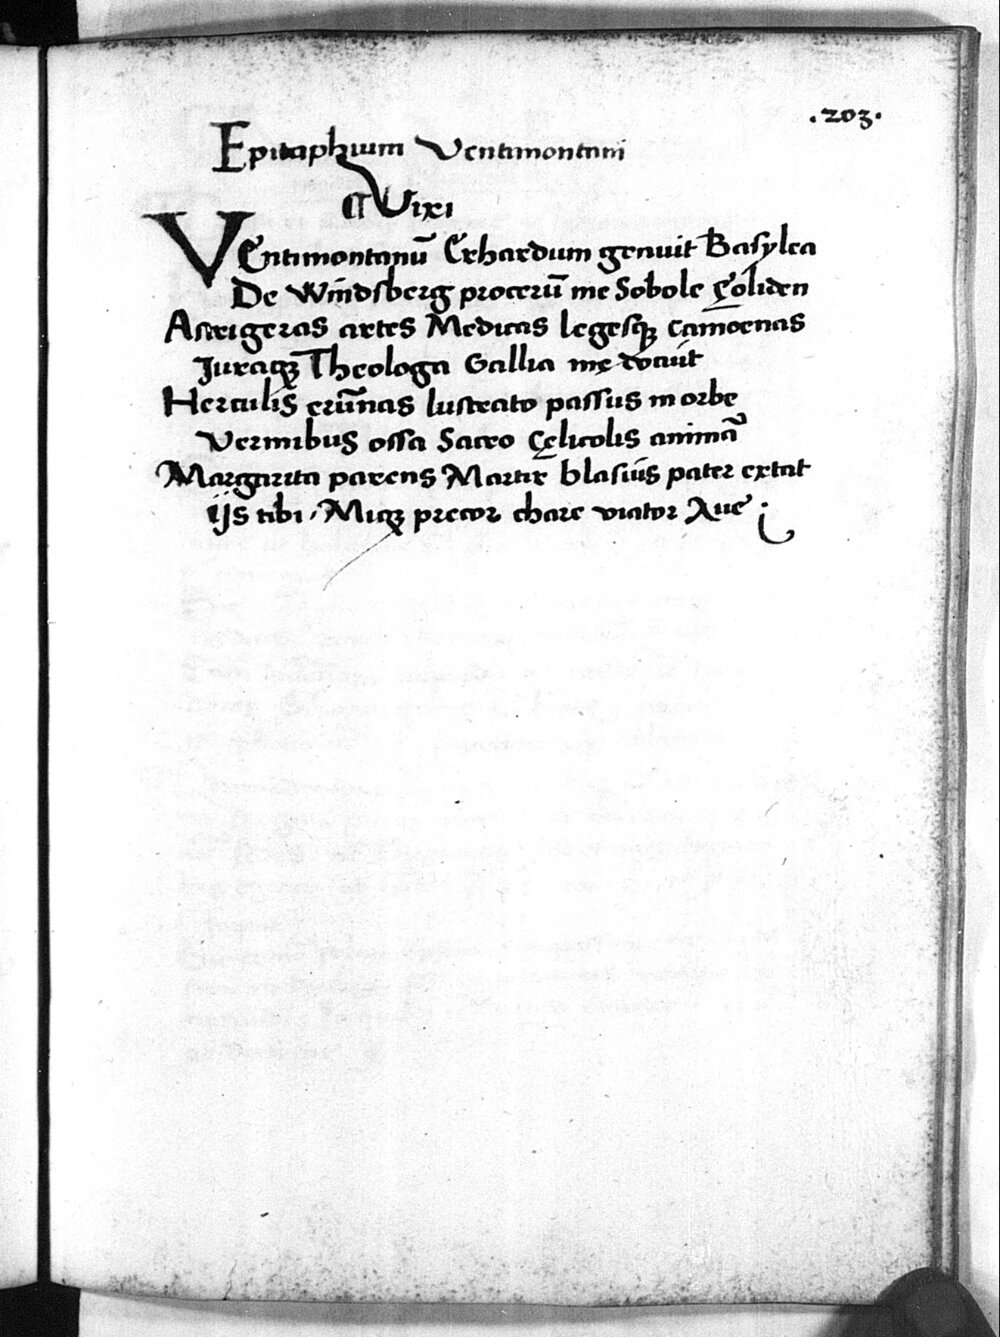 .203.
Epitaphium Ventimontani
¶ Vixi
VEntimontanū Erhardum genuit Basylea
De Wīndsberg procerū me Sobole Coliden
Astrigeras artes Medicas legesqȝ camoenas
Juraqȝ Theologa Gallia me
Herculis erūnas lustrato passus in orbe
Vermibus ossa Sacro Cęlicolis animā
Margarita parens Martir blasius pater extat
ijs tibi, Miqȝ precor chare viator Aue